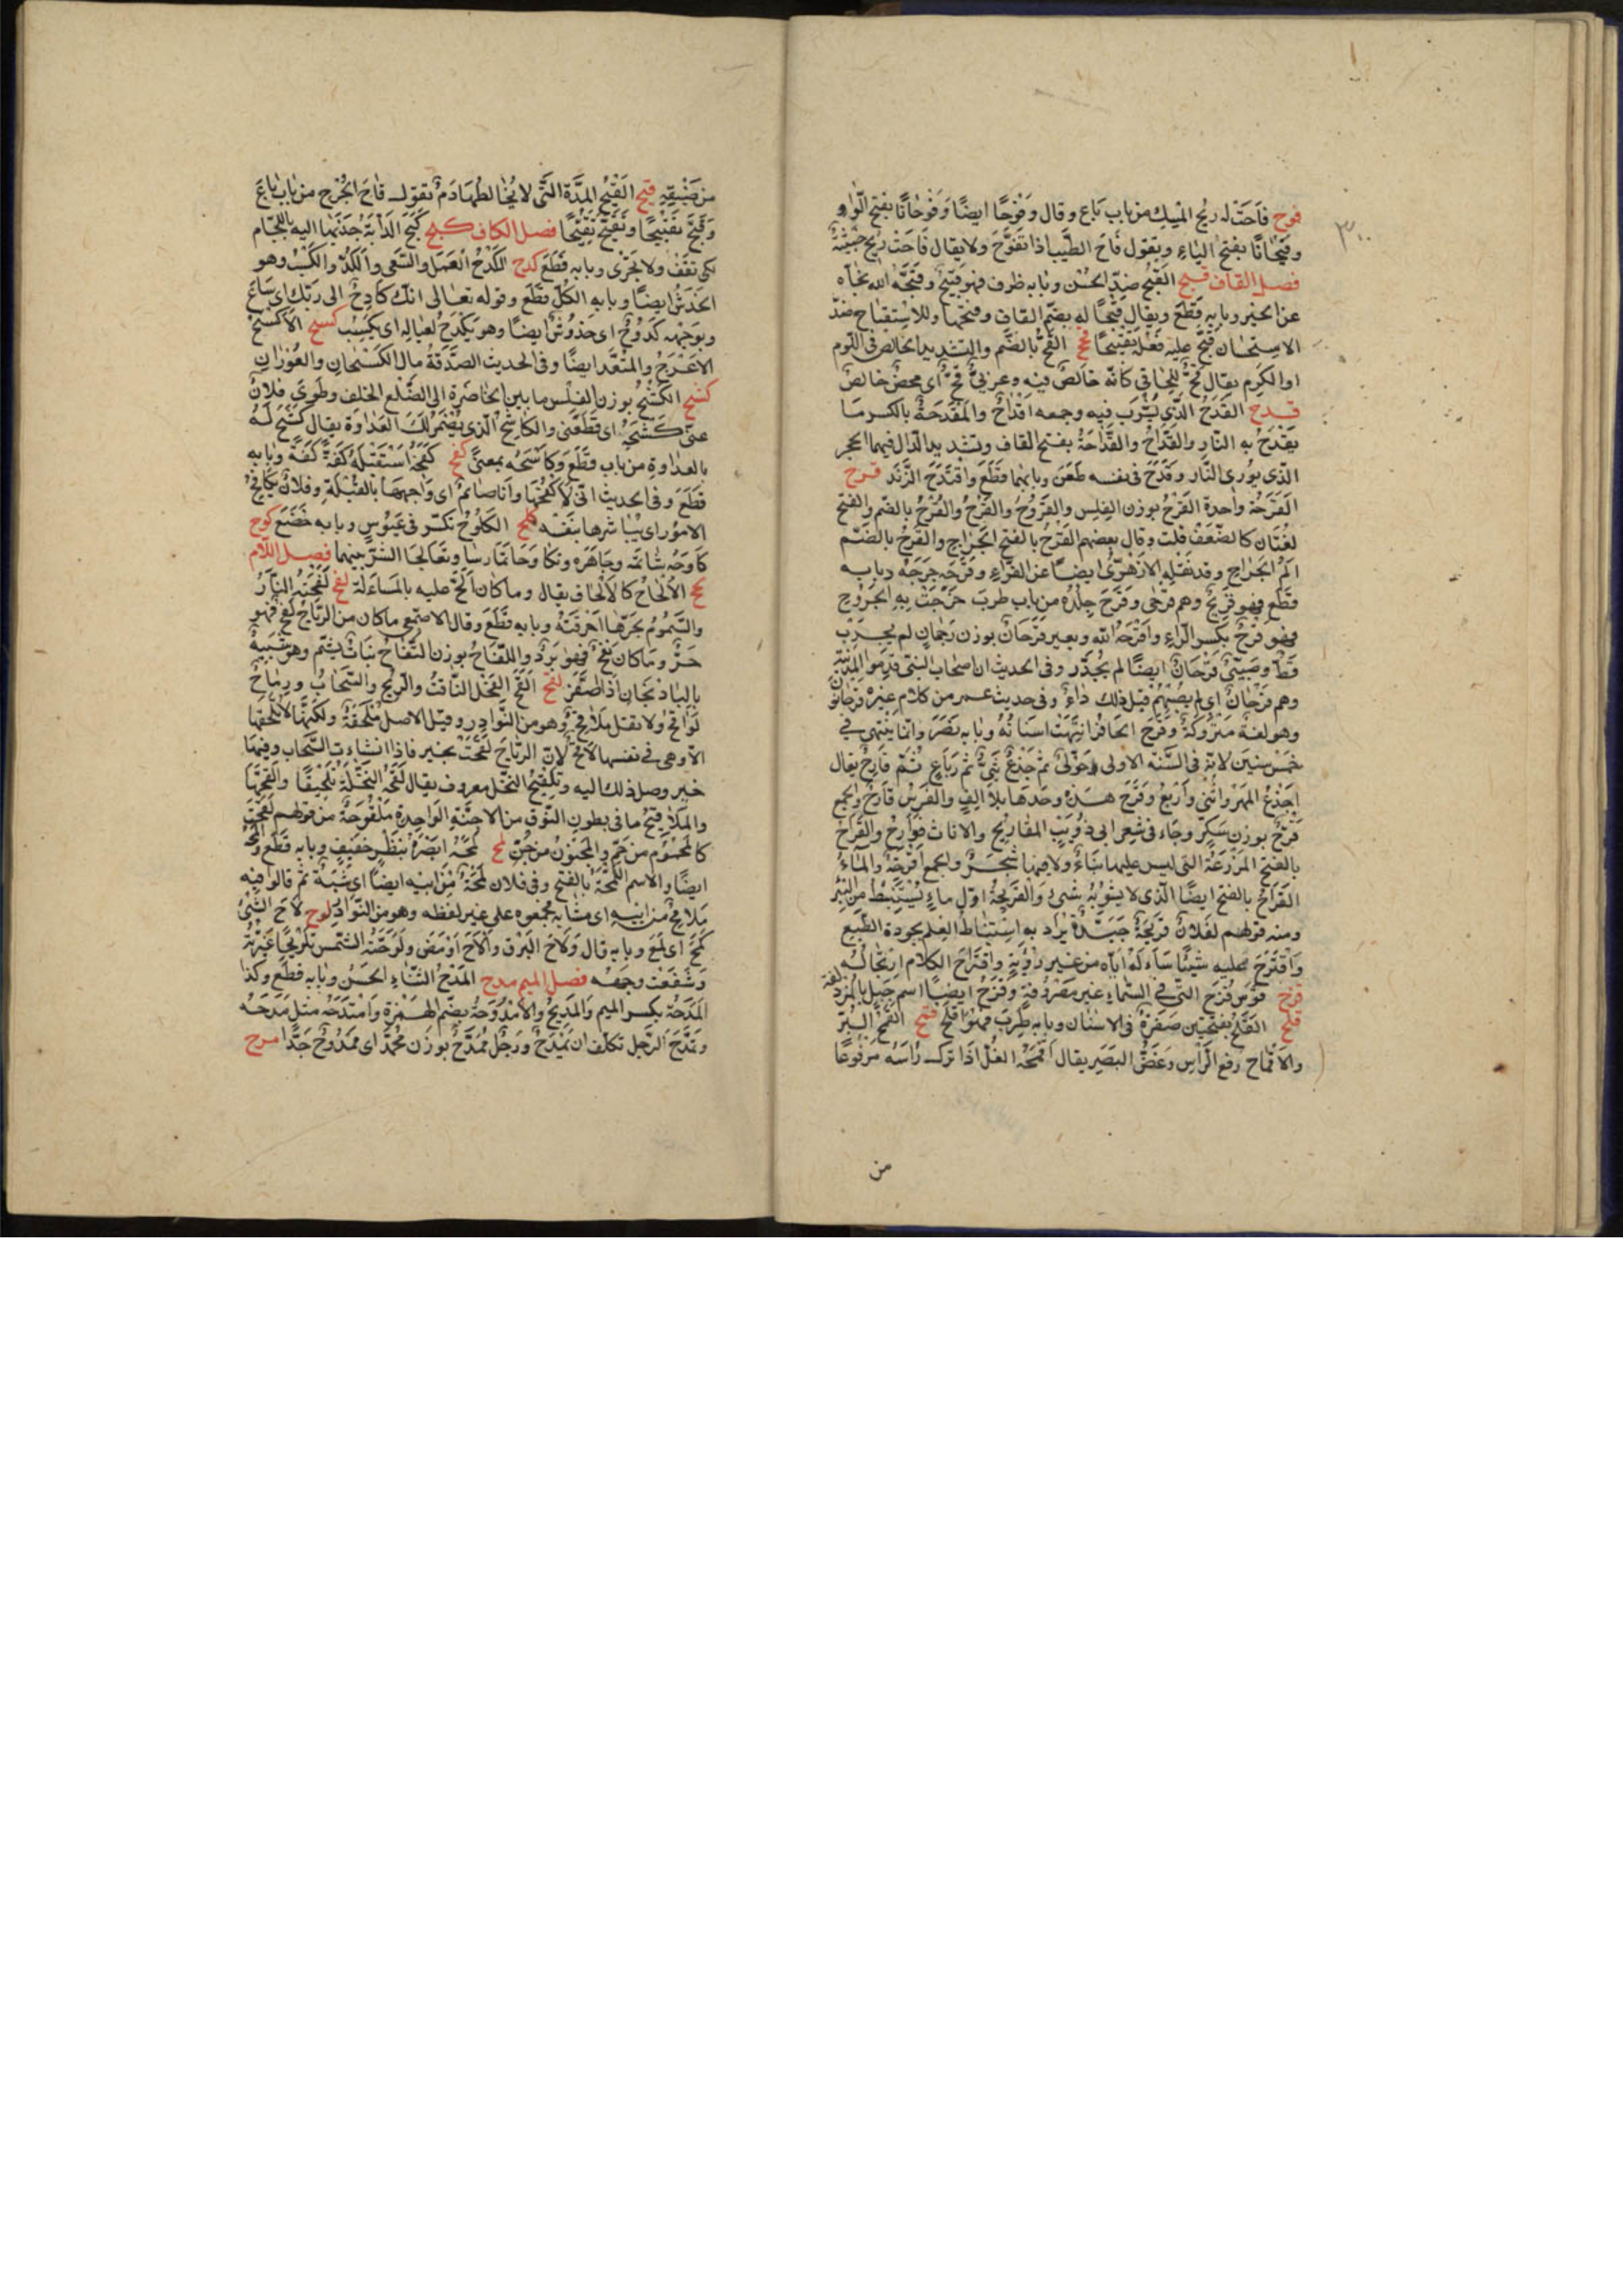 ٣٠
فوح فَاحَتْ له ريح المسك من باب بَاع وقال وَفَوْحًا ايضًا وَفَوْحَانًا بفتح الواو
وفَيَحَانًا بفتح الياء وتقول فَاحَ الطيب اذا تَفَوَّحَ ولا يقال فَاحَتْ ريح خبيثة
فصل القاف قبح القُبْحُ ضد الحُسْن وبابه ظرف فهو قَبِيحٌ وقَبَّحَه الله نحّاه
عن الخير وبابه قَطَعَ ويقال قُبْحًا له بضم القاف وفتحها والاستقباح ضد
الاستحسان قَبَّحَ عليه فعله تقبيحًا قحح القُحُّ بالضم والتشديد الخالص فى اللوم
او الكرم يقال قُحٌّ للجافى كانه خالص فيه وعربىٌّ قُحٌّ اى محض خالص
قدح القَدَحُ الذى يُشْرَب فيه وجمعه اَقْدَاحٌ والمِقْدَحَةُ بالكسر مَا
يُقْدَحُ به النار والقَدَّاحُ والقَدَّاحَةُ بفتح القاف وتشديد الدال فيهما الحجر
الذى يورى النار وقَدَحَ فى نسبه طَعَنَ وبابهما قَطَعَ واقْتَدَحَ الزَّنْدَ قرح
القَرْحَةُ واحدة القَرْحُ بوزن الفلس والقُرُوحُ والقَرْحُ والقُرْحُ بالضم والفتح
لغتان كالضعف قلت وقال بعضهم القَرْحُ بالفتح الجراح والقُرْحُ بالضم
اَلَمُ الجراح وقد نقله الازهرى ايضًا عن الفراء وقَرَحَه جَرَحَهُ وبابه
قَطَعَ فهو قَرِيحٌ وهم قَرْحَى وقَرِحَ جِلْدُه من باب طرب خَرَجَتْ به القروح
فهو قَرِحٌ بكسر الراء واَقْرَحَهُ الله وبعير قُرْحَانٌ بوزن رجحان لم يجرب
قَطُّ وصبىٌّ قُرْحَانٌ ايضًا لم يُجَدَّر وفى الحديث ان اصحاب النبى قدموا المدينة
وهم قُرْحَانٌ اى لم يصبهم قبل ذلك داءٌ وفى حديث عمر من كلام غيره قرحانون
وهو لغة متروكة وقَرَحَ الحافر انتهت اسنانه وبابه نَصَرَ وانما ينتهى فى
خمس سنين لانه فى السنة الاولى حَوْلىٌّ ثم جَذَعٌ ثم ثَنِىٌّ ثم رَبَاعٍ ثم قَارِحٌ يقال
اجذع المهر واثنى واربع وقَرَحَ هذه وحدها بلا الف والفرس قارح والجمع
قُرَّحٌ بوزن سكر وجاء فى شعر ابى ذؤيب المقاريح والاناث قوارح والقَرَاحُ
بالفتح المزرعة التى ليس عليها بناء ولا فيها شجر والجمع اقرحة والماء
القَرَاحُ بالفتح ايضًا الذى لا يشوبه شىء والقَرِيحَةُ اول ماء يُسْتَنْبَطُ من البئر
ومنه قولهم لفلان قريحة جيدة يُرَاد به استنباط العلم بجودة الطبع
واقْتَرَحَ عليه شيئًا سَأَلَه اياه من غير رؤية واقتراح الكلام ارتجاله
قزح قوس قُزَحَ التى فى السماء غير مصروفة وقُزَحُ ايضًا اسم جبل بالمزدلفة
قلح القَلَحُ بفتحتين صفرة فى الاسنان وبابه طرب فهو اَقْلَحُ قمح القمح البُرّ
والاقماح رفع الراس وغض البصر يقال اَقْمَحَهُ الغُلّ اذا ترك رأسه مرفوعًا
من
من ضيقه قيح القَيْحُ المِدَّة التى لا يخالطها دَمٌ تقول قَاحَ الجُرْح من باب بَاع
وقَيَّحَ تَقْيِيحًا وتَقَيَّحَ تَقَيُّحًا فصل الكاف كبح كَبَحَ الدابة جذبها اليه باللجام
لكى تقف ولا تجرى وبابه قَطَعَ كدح الكَدْحُ العمل والسعى والكَدُّ والكسب وهو
الخَدْشُ ايضًا وبابه الكل قَطَعَ وقوله تعالى انك كادح الى ربك اى ساع
وبوجهه كُدُوحٌ اى خدوش ايضًا وهو يَكْدَحُ لعياله اى يكسب كسح الاَكْسَحُ
الاعرج والمقعد ايضًا وفى الحديث الصدقة مال الكُسْحَان والعُورَان
كشح الكَشْحُ بوزن الفلس ما بين الخاصرة الى الضلع الخلف وطوى فلان
عنى كَشْحَهُ اى قطعنى والكَاشِحُ الذى يُضْمِرُ لك العداوة يقال كَشَحَ له
بالعداوة من باب قَطَعَ وكَاشَحَه بمعنى كفح كَفَحَهُ استقبله كَفَّةً كَفَّةً وبابه
قَطَعَ وفى الحديث انى لَاَكْفَحُهَا وانا صائم اى واجهها بالقبلة وفلان يكافح
الامور اى يباشرها بنفسه كلح الكُلُوحُ تكشر فى عبوس وبابه خضع كوح
كَاوَحَه شاتمه وجاهره وتكاوحا تمارسا وتعالجا الشر بينهما فصل اللام
لحح الاِلْحَاحُ كالالحاف يقال وما كان اَلَحَّ عليه بالمساءلة لفح لَفَحَتْهُ النار
والسموم بحرها احرقته وبابه قَطَعَ وقال الاصمعى ما كان من الرياح لَفْحٌ فهو
حَرٌّ وما كان نَفْحٌ فهو بَرْدٌ واللُّفَّاحُ بوزن التفاح نبات يشم وهو شبيه
بالباذنجان اذا اصفر لقح اَلْقَحَ الفحل الناقة والريح والسحاب ورياح
لَوَاقِحُ ولا تقل مَلَاقِحُ وهو من النوادر وقيل الاصل مُلْقِحَةٌ ولكنها لا تُلْقِحُ
الا وهى فى نفسها لاقح لان الرياح لَقِحَتْ بخير فاذا انشاءت السحاب وفيها
خير وصل ذلك اليه وتَلْقِيحُ النخل معروف يقال لَقَّحَ النخلة تَلْقِيحًا واَلْقَحَهَا
والمَلَاقِيحُ ما فى بطون النوق من الاجنة الواحدة ملقوحة من قولهم لُقِحَتْ
كالمحموم من حُمَّ والمجنون من جُنَّ لمح لَمَحَهُ ابصره بنظر خفيف وبابه قَطَعَ واَلْمَحَهُ
ايضًا والاسم اللَّمْحَةُ بالفتح وفى فلان لَمْحَةٌ من ابيه ايضًا اى شَبَهٌ ثم قالوا فيه
مَلَامِحُ من ابيه اى مشابه فجمعوه على غير لفظه وهو من النوادر لوح لَاحَ الشىء
لَمَحَ اى لمع وبابه قال وَلَاحَ البرق وَاَلَاحَ اومض ولَوَّحَتْهُ الشمس تلويحًا غيرته
وسفعت وجهه فصل الميم مدح المَدْحُ الثناء الحسن وبابه قطع وكذا
المِدْحَةُ بكسر الميم والمَدِيحُ والاُمْدُوحَةُ بضم الهمزة وامْتَدَحَهُ مثل مَدَحَهُ
وتَمَدَّحَ الرجل تكلف ان يُمْدَحَ ورجل مُمَدَّحٌ بوزن محمد اى ممدوح جَدًّا مرح